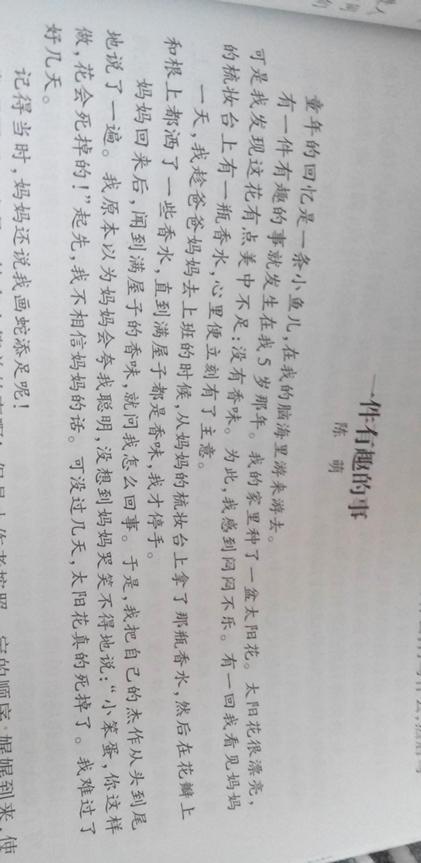 一件有趣的事
陈 萌
童年的回忆是一条小鱼儿,在我的脑海里游来游去。
有一件有趣的事就发生在我5岁那年。我的家里种了一盆太阳花。太阳花很漂亮,
可是我发现这花有点美中不足:没有香味。为此,我感到闷闷不乐。有一回我看见妈妈
的梳妆台上有一瓶香水,心里便立刻有了主意。
一天,我趁爸爸妈妈去上班的时候,从妈妈的梳妆台上拿了那瓶香水,然后在花瓣上
和根上都洒了一些香水,直到满屋子都是香味,我才停手。
妈妈回来后,闻到满屋子的香味,就问我怎么回事。于是,我把自己的杰作从头到尾
地说了一遍。我原本以为妈妈会夸我聪明,没想到妈妈哭笑不得地说:“小笨蛋,你这样
做,花会死掉的!”起先,我不相信妈妈的话。可没过几天,太阳花真的死掉了。我难过了
好几天。
记得当时,妈妈还说我画蛇添足呢!